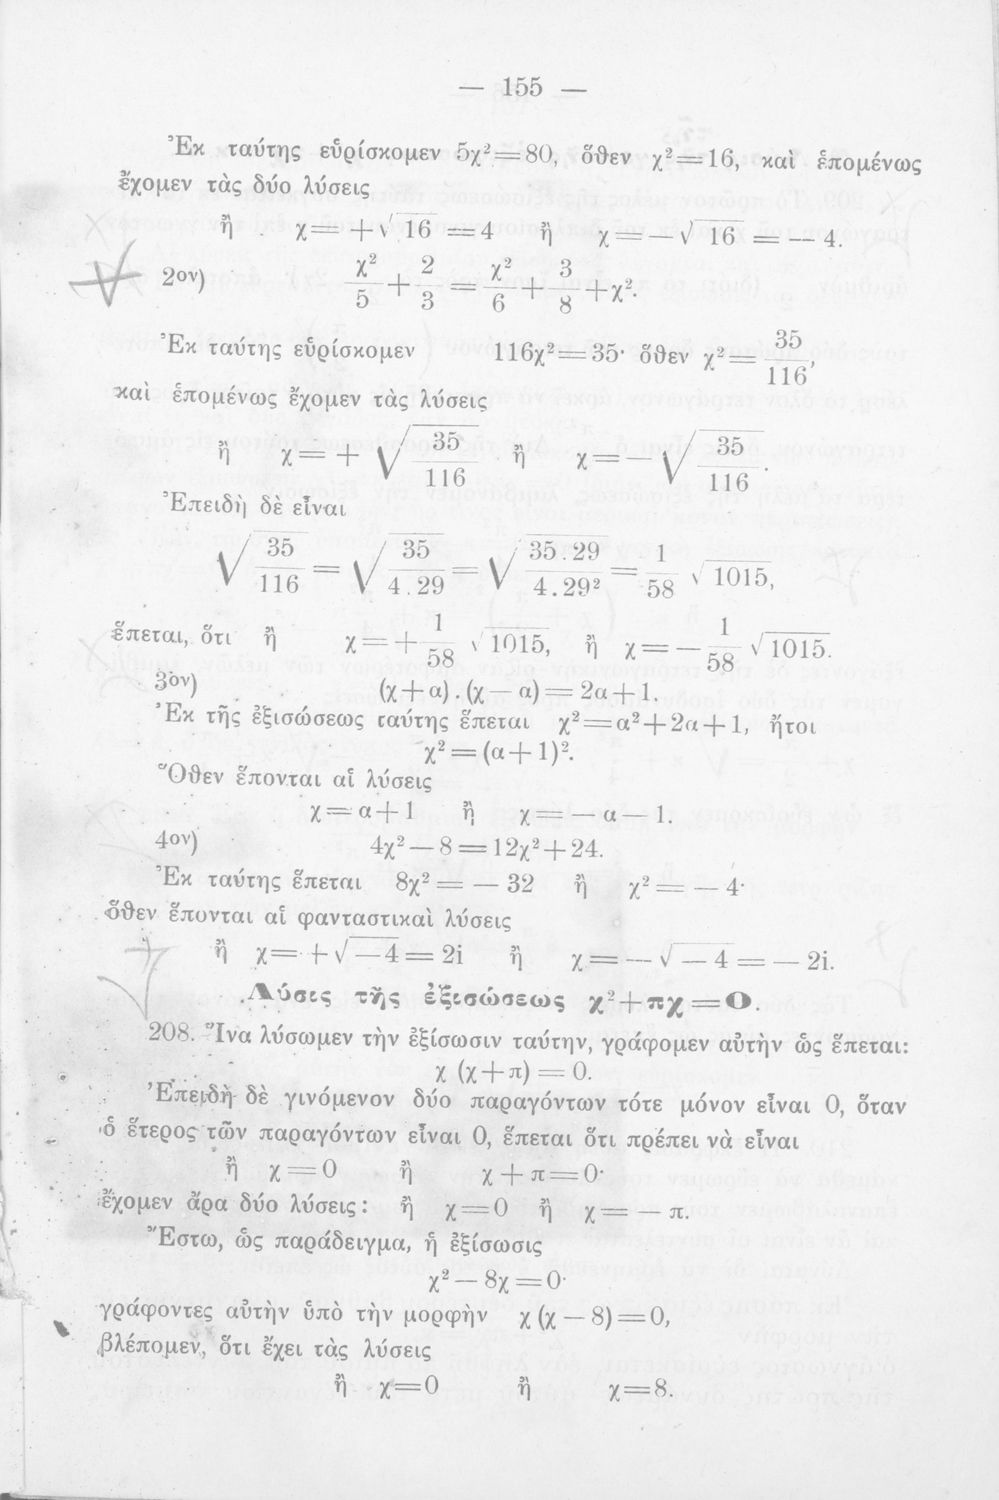 — 155 —
Ἐκ ταύτης εὑρίσκομεν 5χ²=80, ὅθεν χ²=16, καὶ ἑπομένως
ἔχομεν τὰς δύο λύσεις
ἢ χ=+√16=4 ἢ χ=—√16=—4.
2ον) χ²/5 + 2/3 = χ²/6 + 3/8 + χ².
Ἐκ ταύτης εὑρίσκομεν 116χ²=35· ὅθεν χ²=35/116,
καὶ ἑπομένως ἔχομεν τὰς λύσεις
ἢ χ=+√35/116 ἢ χ=—√35/116.
Ἐπειδὴ δὲ εἶναι
√35/116 = √35/4.29 = √35.29/4.29² = 1/58 √1015,
ἕπεται, ὅτι ἢ χ=+1/58 √1015, ἢ χ=—1/58 √1015.
3ον) (χ+α).(χ—α)=2α+1.
Ἐκ τῆς ἐξισώσεως ταύτης ἕπεται χ²=α²+2α+1, ἤτοι
χ²=(α+1)².
Ὅθεν ἕπονται αἱ λύσεις
χ=α+1 ἢ χ=—α—1.
4ον) 4χ²—8=12χ²+24.
Ἐκ ταύτης ἕπεται 8χ²=—32 ἢ χ²=—4·
ὅθεν ἕπονται αἱ φανταστικαὶ λύσεις
ἢ χ=+√—4=2i ἢ χ=—√—4=—2i.
Λύσις τῆς ἐξισώσεως χ²+πχ=0.
208. Ἵνα λύσωμεν τὴν ἐξίσωσιν ταύτην, γράφομεν αὐτὴν ὡς ἕπεται:
χ (χ+π)=0.
Ἐπειδὴ δὲ γινόμενον δύο παραγόντων τότε μόνον εἶναι 0, ὅταν
ὁ ἕτερος τῶν παραγόντων εἶναι 0, ἕπεται ὅτι πρέπει νὰ εἶναι
ἢ χ=0 ἢ χ+π=0·
ἔχομεν ἄρα δύο λύσεις: ἢ χ=0 ἢ χ=—π.
Ἔστω, ὡς παράδειγμα, ἡ ἐξίσωσις
χ²—8χ=0·
γράφοντες αὐτὴν ὑπὸ τὴν μορφὴν χ(χ—8)=0,
βλέπομεν, ὅτι ἔχει τὰς λύσεις
ἢ χ=0 ἢ χ=8.